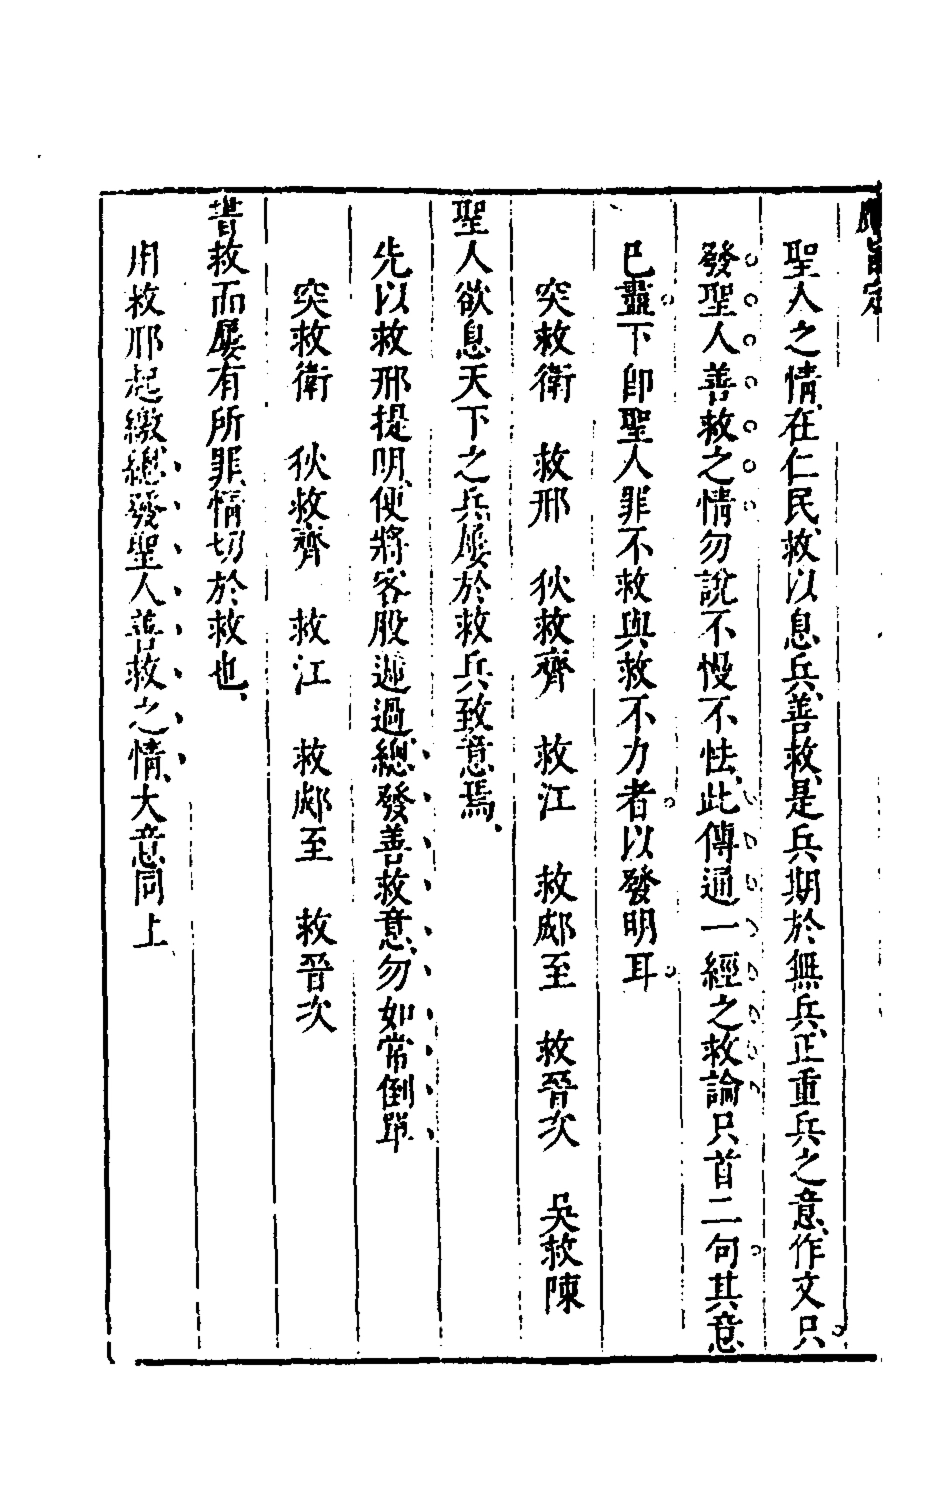 聖人之情、在仁民、救以息兵、善救、是兵期於無兵、正重兵之意、作文只
發聖人善救之情勿說不慢不怯、此傳通一經之救論只首二句其意
已盡下即聖人罪不救與救不力者以發明耳
突救衛　救邢　狄救齊　救江　救郕至　救晉次　吳救陳
聖人欲息天下之兵、屡於救兵致意焉、
先以救邢提明、便將客股遞過、總發善救意、勿如常倒單
突救衛　狄救齊　救江　救郕至　救晉次
書救而屡有所罪、情切於救也、
用救邢起繳、總發聖人善救之情、大意同上